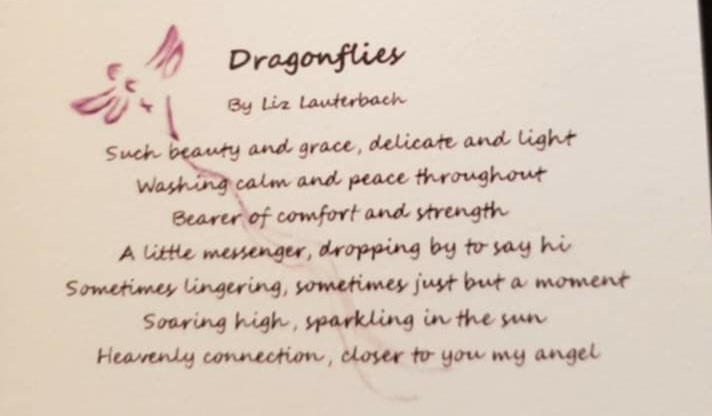 Dragonflies
By Liz Lauterbach
Such beauty and grace, delicate and light
Washing calm and peace throughout
Bearer of comfort and strength
A little messenger, dropping by to say hi
Sometimes lingering, sometimes just but a moment
Soaring high, sparkling in the sun
Heavenly connection, closer to you my angel